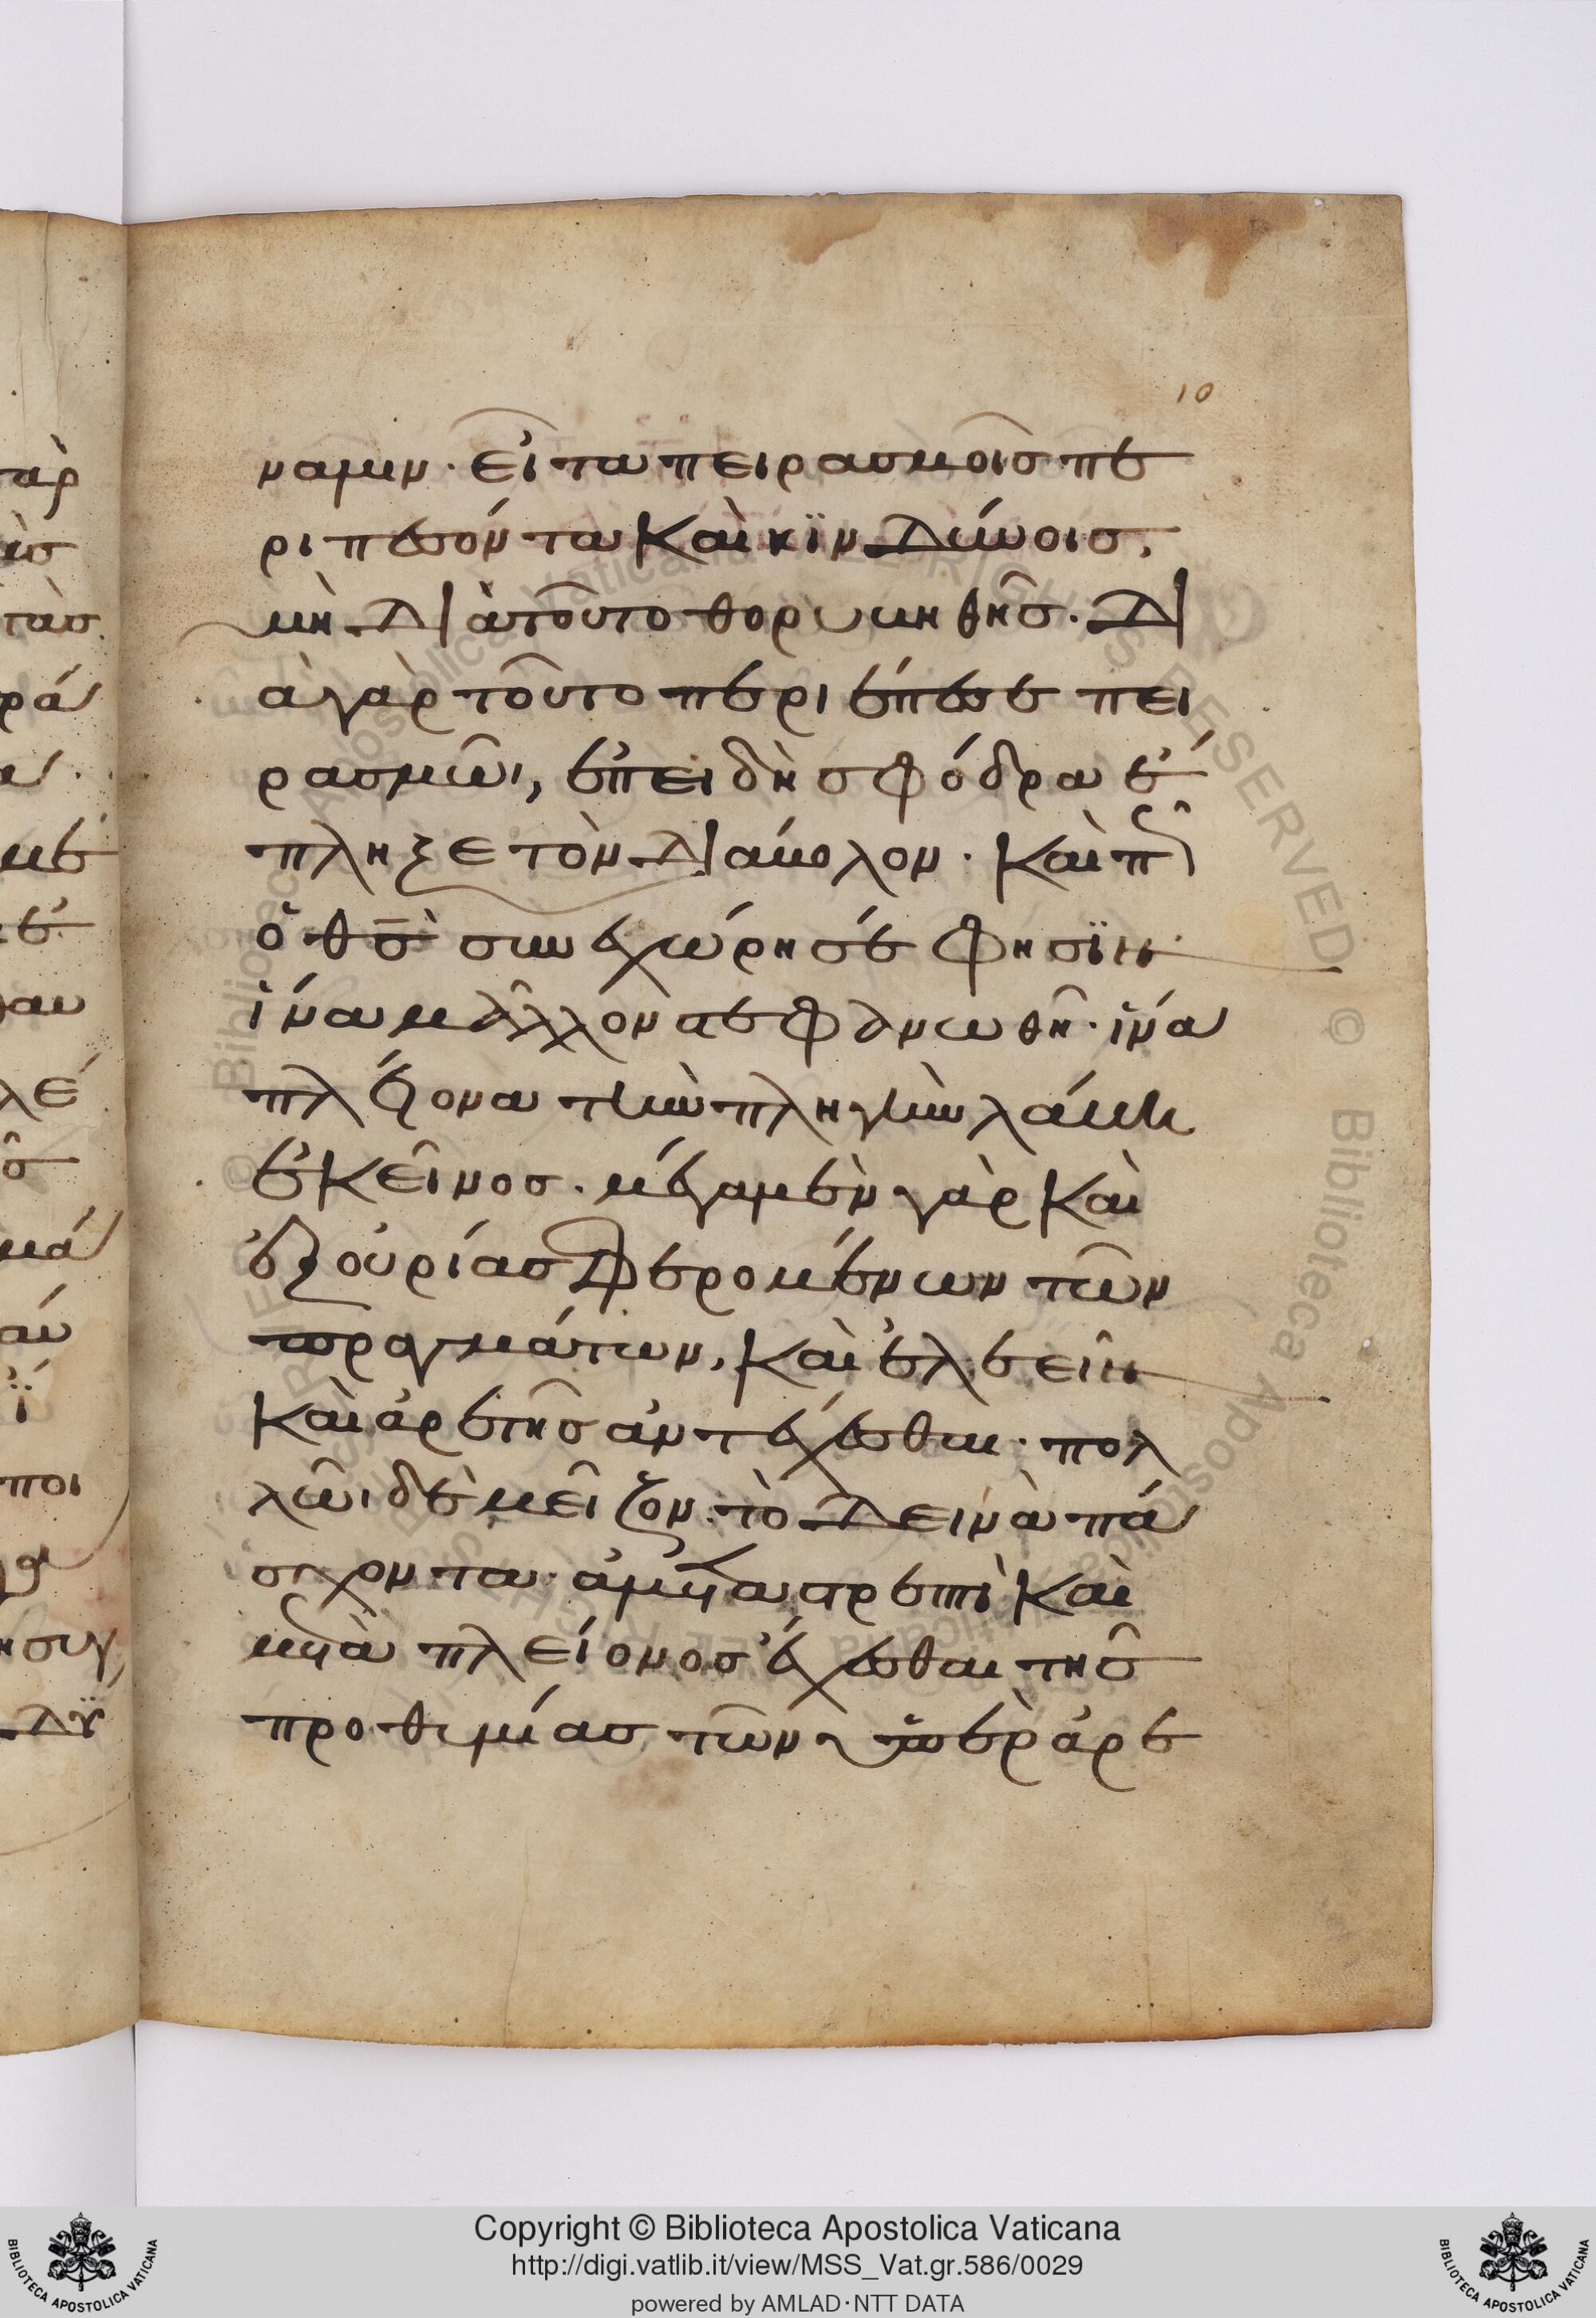 παρ
ὰσ
τὰσ
ρά
με
ἐ
λέ
μά
ποι
ησυγ
10
ναμιν· εἶτα πειρασμοῖς πε
ριπεσόντα καὶ κϊνδύνοις,
μὴ διὰ τοῦτο θορυβηθῆς. δι
ὰ γὰρ τοῦτο περιέπεσε πει
ρασμῶι, ἐπειδὴ σφόδρα ἔ
πληξε τὸν διάβολον· καὶ π
ὁ θς̄ συνεχώρησέ φησϊν·
ἵνα μᾶλλον στεφανωθῆ· ἵνα
πλέονα τὴν πληγὴν λάβη
ἐκεῖνος. μέγα μὲν γὰρ καὶ
ἐξ οὐρίας φερομένων τῶν
πραγμάτων, καὶ ἐλεεῖν
καὶ ἀρετῆς ἀντέχεσθαι· πολ
λῶι δὲ μεῖζον· τὸ δεινὰ πά
σχοντα· ἀμεταστρεπτὶ καὶ
μετὰ πλείονος ἔχεσθαι τῆς
προθυμίας τῶν ὑπὲρ ἀρε
Copyright © Biblioteca Apostolica Vaticana
http://digi.vatlib.it/view/MSS_Vat.gr.586/0029
powered by AMLAD·NTT DATA
BIBLIOTECA APOSTOLICA VATICANA
BIBLIOTECA APOSTOLICA VATICANA